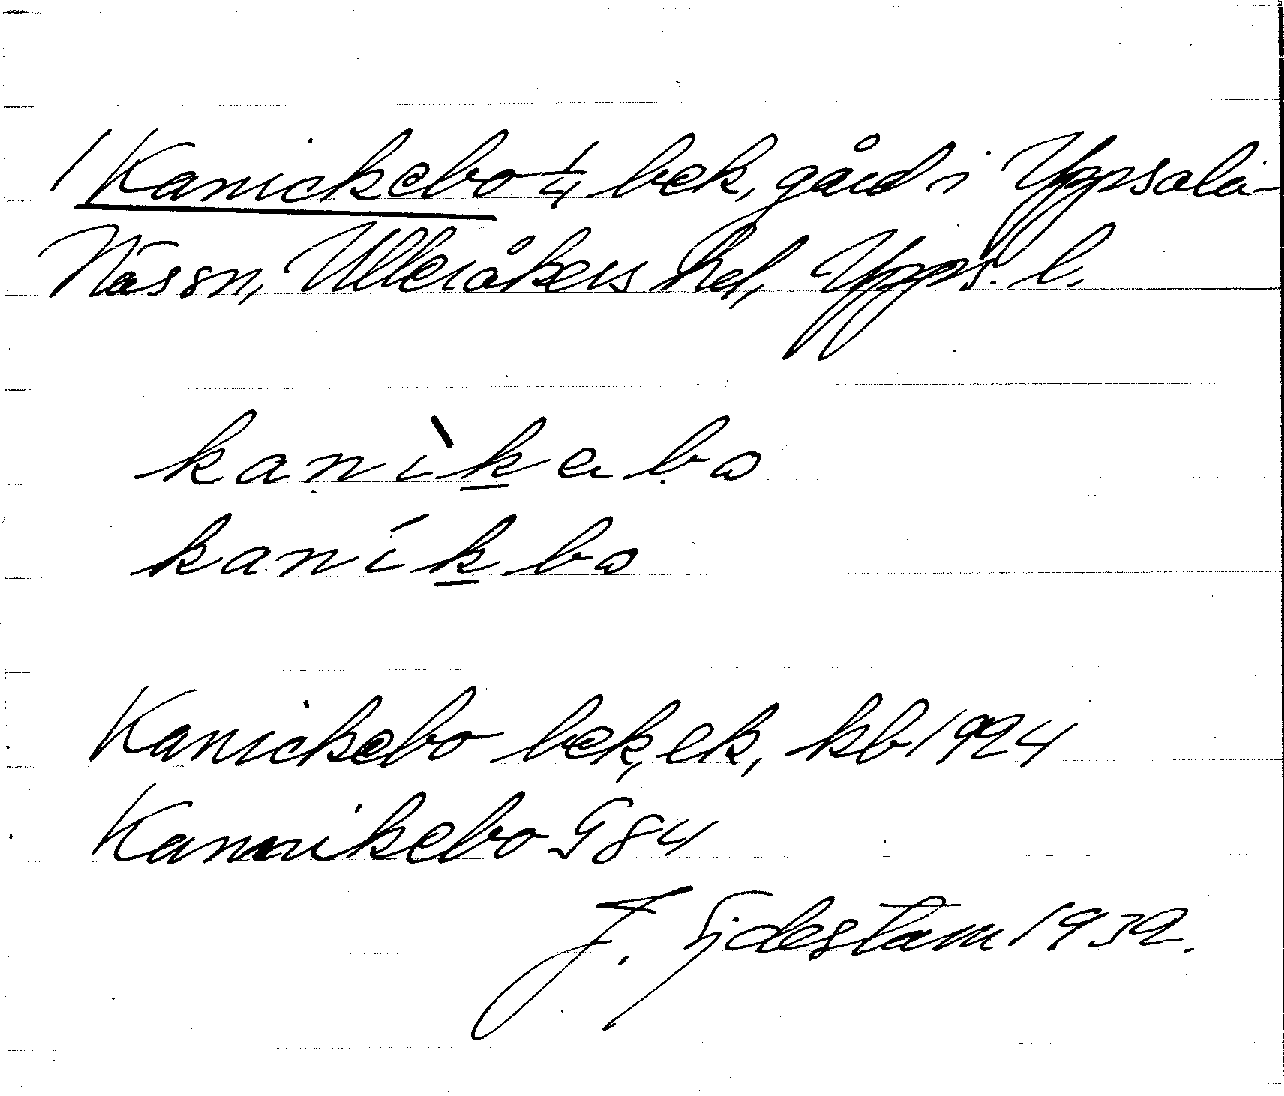 1 Kanickebo 1/4 bek, gård i Uppsala-
Näs sn, Ulleråkers hd, Upps. l.
kanìkabo
kaníkbo
Kanickebo bek, ek, kb 1924
Kannikebo G 84
F. Tjdestam 1932.